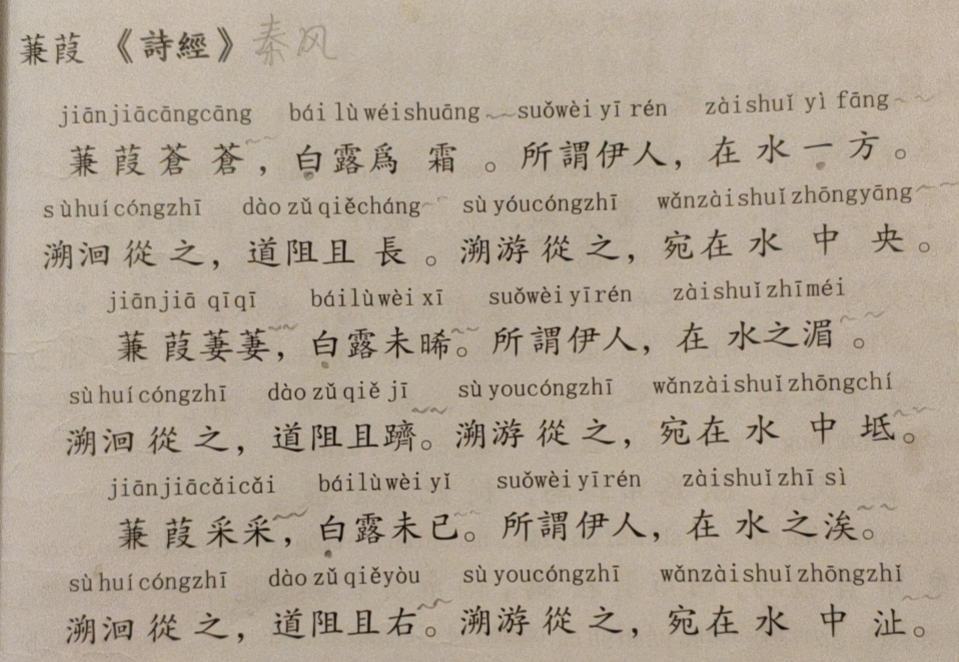 蒹葭 《詩經》秦风
jiānjiācāngcāng bái lù wéishuāng suǒwèi yī rén zàishuǐ yì fāng
蒹葭蒼蒼，白露爲霜。所謂伊人，在水一方。
sùhuícóngzhī dào zǔ qiěcháng sù yóucóngzhī wǎnzàishuǐzhōngyāng
溯洄從之，道阻且長。溯游從之，宛在水中央。
jiānjiā qīqī báilùwèi xī suǒwèiyīrén zàishuǐzhīméi
蒹葭萋萋，白露未晞。所謂伊人，在水之湄。
sùhuícóngzhī dào zǔ qiě jī sù youcóngzhī wǎnzàishuǐzhōngchí
溯洄從之，道阻且躋。溯游從之，宛在水中坻。
jiānjiācǎicǎi báilùwèi yǐ suǒwèiyīrén zàishuǐzhī sì
蒹葭采采，白露未已。所謂伊人，在水之涘。
sùhuícóngzhī dào zǔ qiěyòu sù youcóngzhī wǎnzàishuǐzhōngzhǐ
溯洄從之，道阻且右。溯游從之，宛在水中沚。